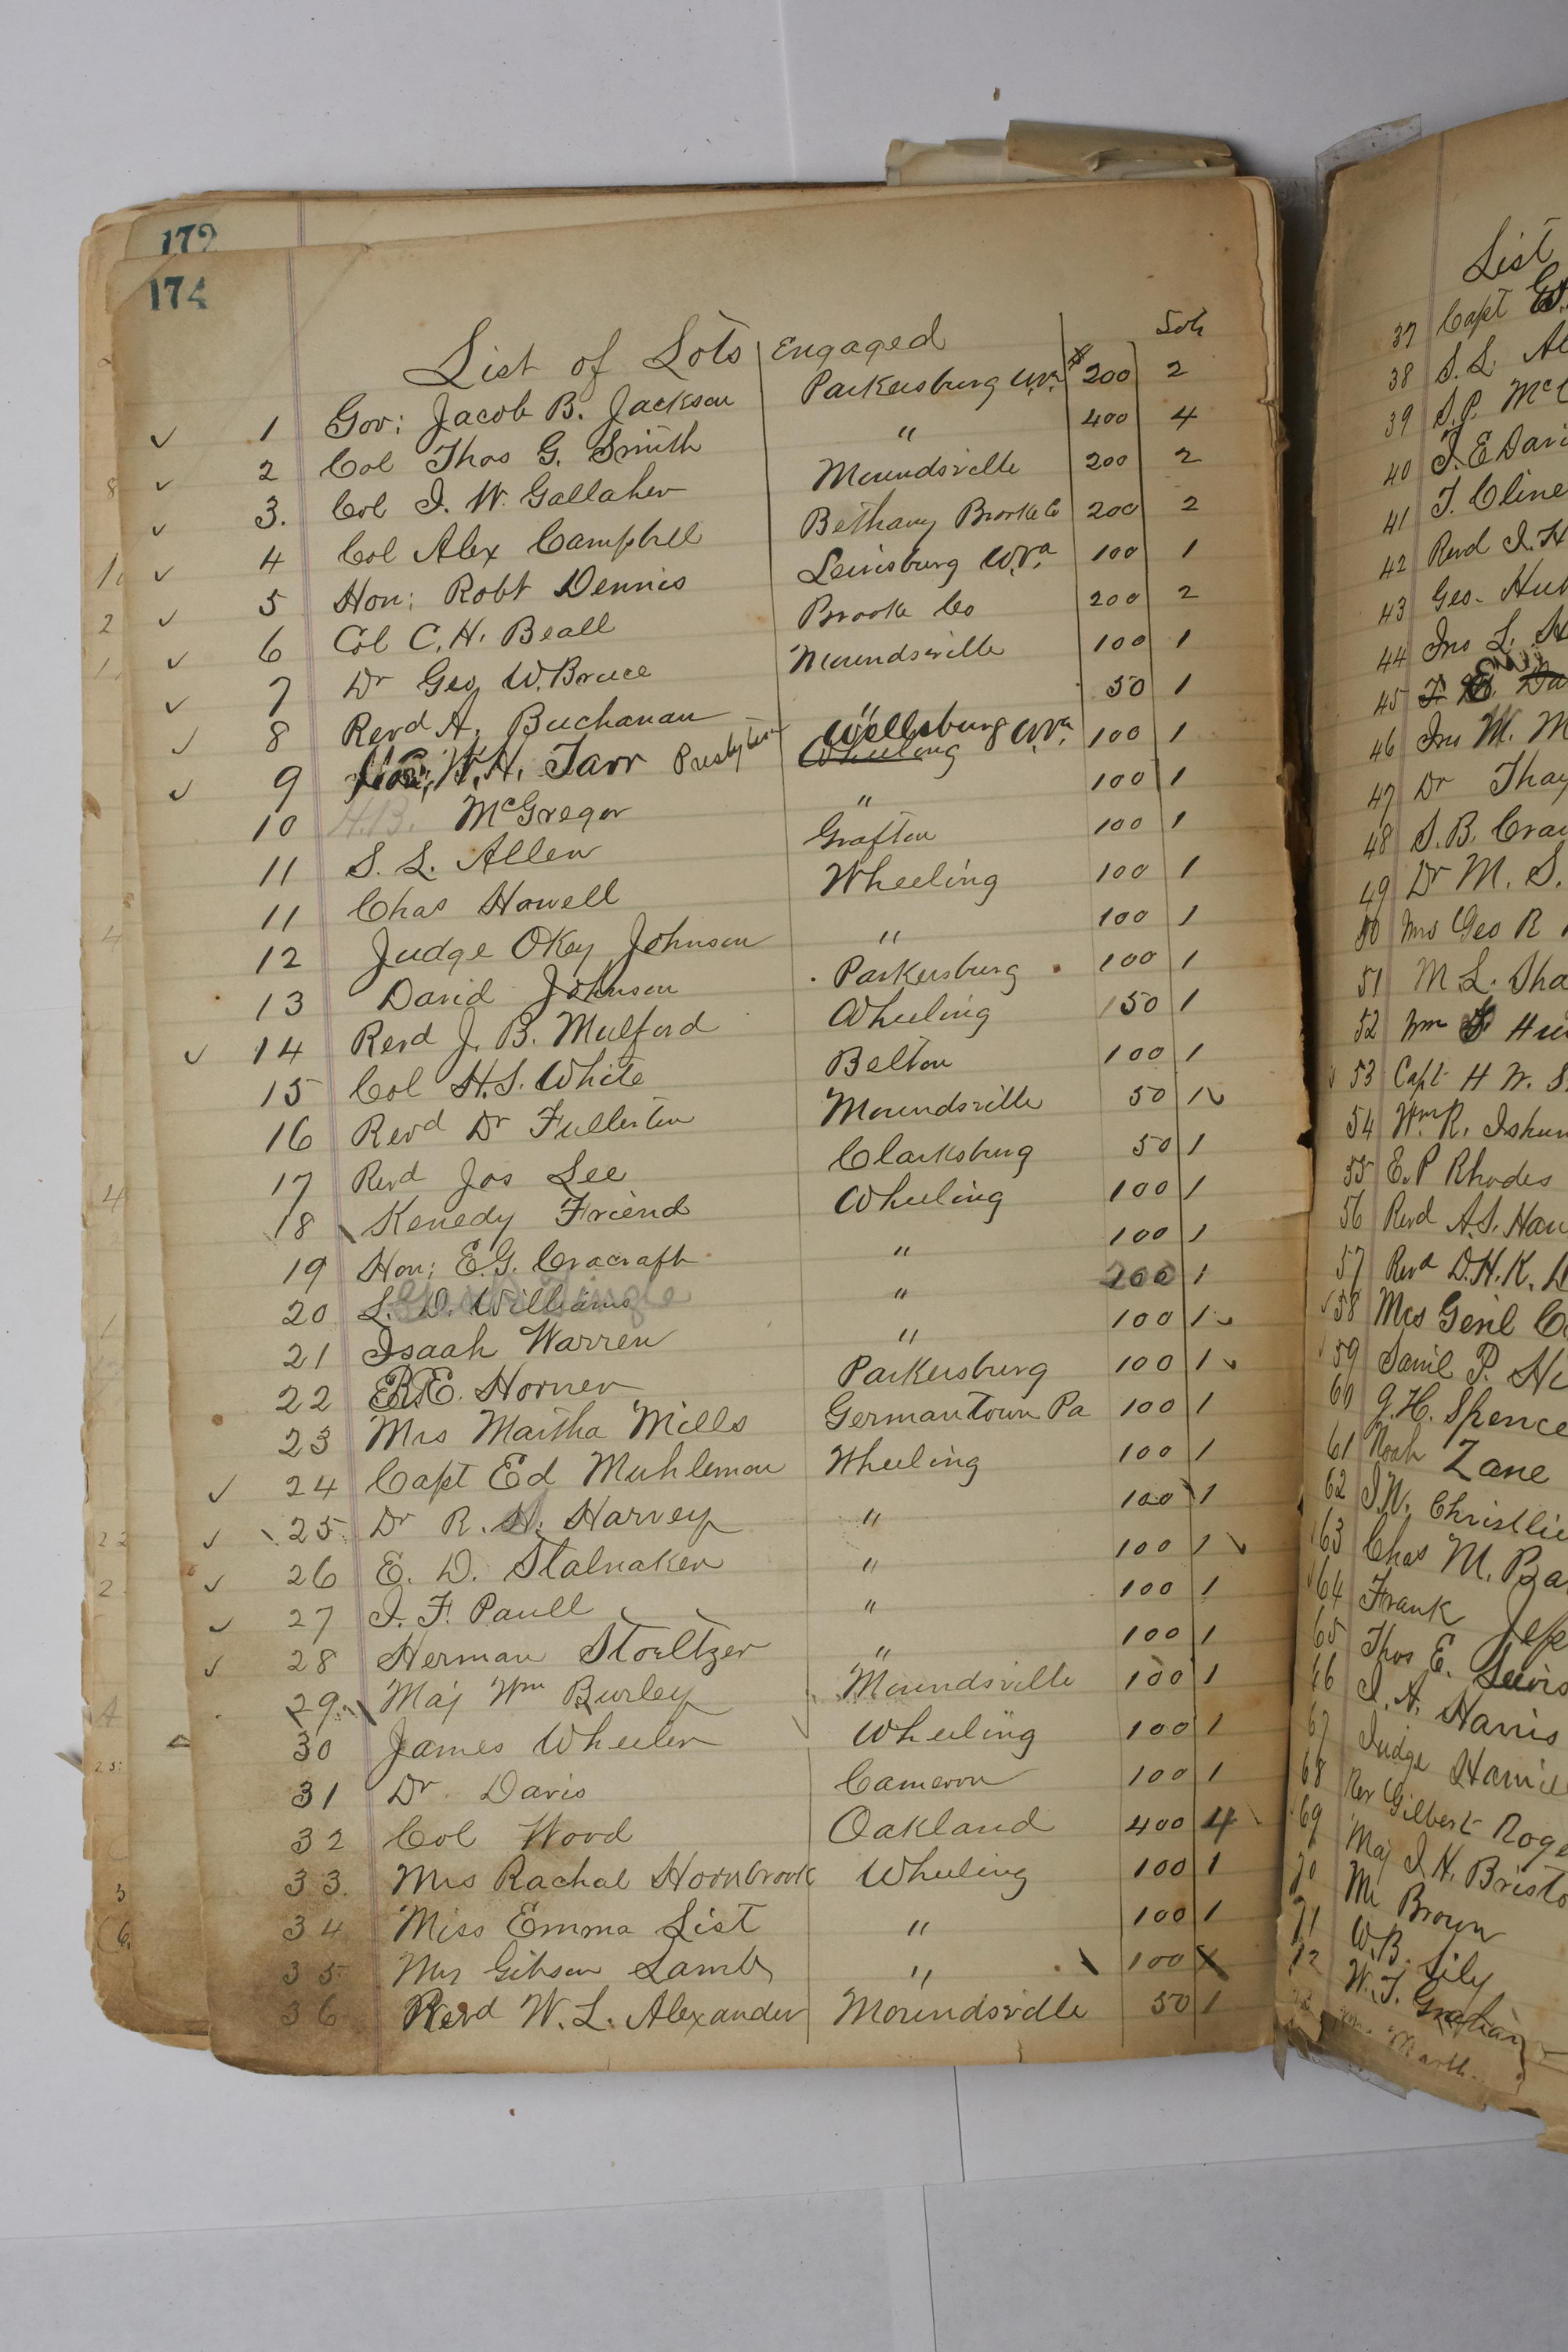 172
174
List of Lots Engaged
Lots
1 Gov; Jacob B. Jackson Parkersburg W.Va. $200 2
2 Col Thos G. Smith " 400 4
3. Col J. W. Gallaher Moundsville 200 2
4 Col Alex Campbell Bethany Brooke Co 200 2
5 Hon; Robt Dennis Lewisburg W.Va. 100 1
6 Col C. H. Beall Brooke Co 200 2
7 Dr Geo W. Bruce Moundsville 100 1
8 Revd A. Buchanan " 50 1
9 W. H. Tarr Presbyterian Wheeling Wellsburg W.Va. 100 1
10 H.B. McGregor " 100 1
11 S. L. Allen Grafton 100 1
11 Chas Howell Wheeling 100 1
12 Judge Okey Johnson " 100 1
13 David Johnson Parkersburg 100 1
14 Revd J. B. Mulford Wheeling 50 1
15 Col H. S. White Belton 100 1
16 Revd Dr Fullerton Moundsville 50 1
17 Revd Jos Lee Clarksburg 50 1
18 Kenedy Friend Wheeling 100 1
19 Hon; E. G. Cracraft " 100 1
20 L. D. Williams " 1
21 Isaah Warren " 100 1
22 R. E. Horner Parkersburg 100 1
23 Mrs Martha Mills Germantown Pa 100 1
24 Capt Ed Muhleman Wheeling 100 1
25 Dr R. H. Harvey " 100 1
26 E. D. Stalnaker " 100 1
27 J. F. Paull " 100 1
28 Herman Stoeltzer " 100 1
29 Maj Wm Burley Moundsville 100 1
30 James Wheeler Wheeling 100 1
31 Dr Davis Cameron 100 1
32 Col Wood Oakland 400 4
33. Mrs Rachal Hornbrook Wheeling 100 1
34 Miss Emma List " 100 1
35 Mrs Gibson Lamb " 100
36 Revd W. L. Alexander Moundsville 50 1
List
37 Capt
38 S. L. Al
39 S. P. McC
40 J. E Davi
41 T. Cline
42 Revd J. H
43 Geo. Hu
44 Jno L. H
45
46 Jno W. M
47 Dr Thay
48 S. B. Cra
49 Dr M. S.
50 Mrs Geo R
51 M. L. Tha
52 Wm Hu
53 Capt H W. S
54 Wm R. Ishum
55 E. P Rhodes
56 Revd A. S. Han
57 Revd D. H. K. D
58 Mrs Genl C
59 Saml P. Hi
60 J. H. Spence
61 Noah Zane
62 J. W. Christlie
63 Chas M. Ba
64 Frank Jep
65 Thos E. Lewis
66 J. A. Harris
67 Judge
68 Rev Gilbert Roge
69 Maj J. H. Bristo
70 Mr Brown
71 W. B. Lily
72 W. T. Graham